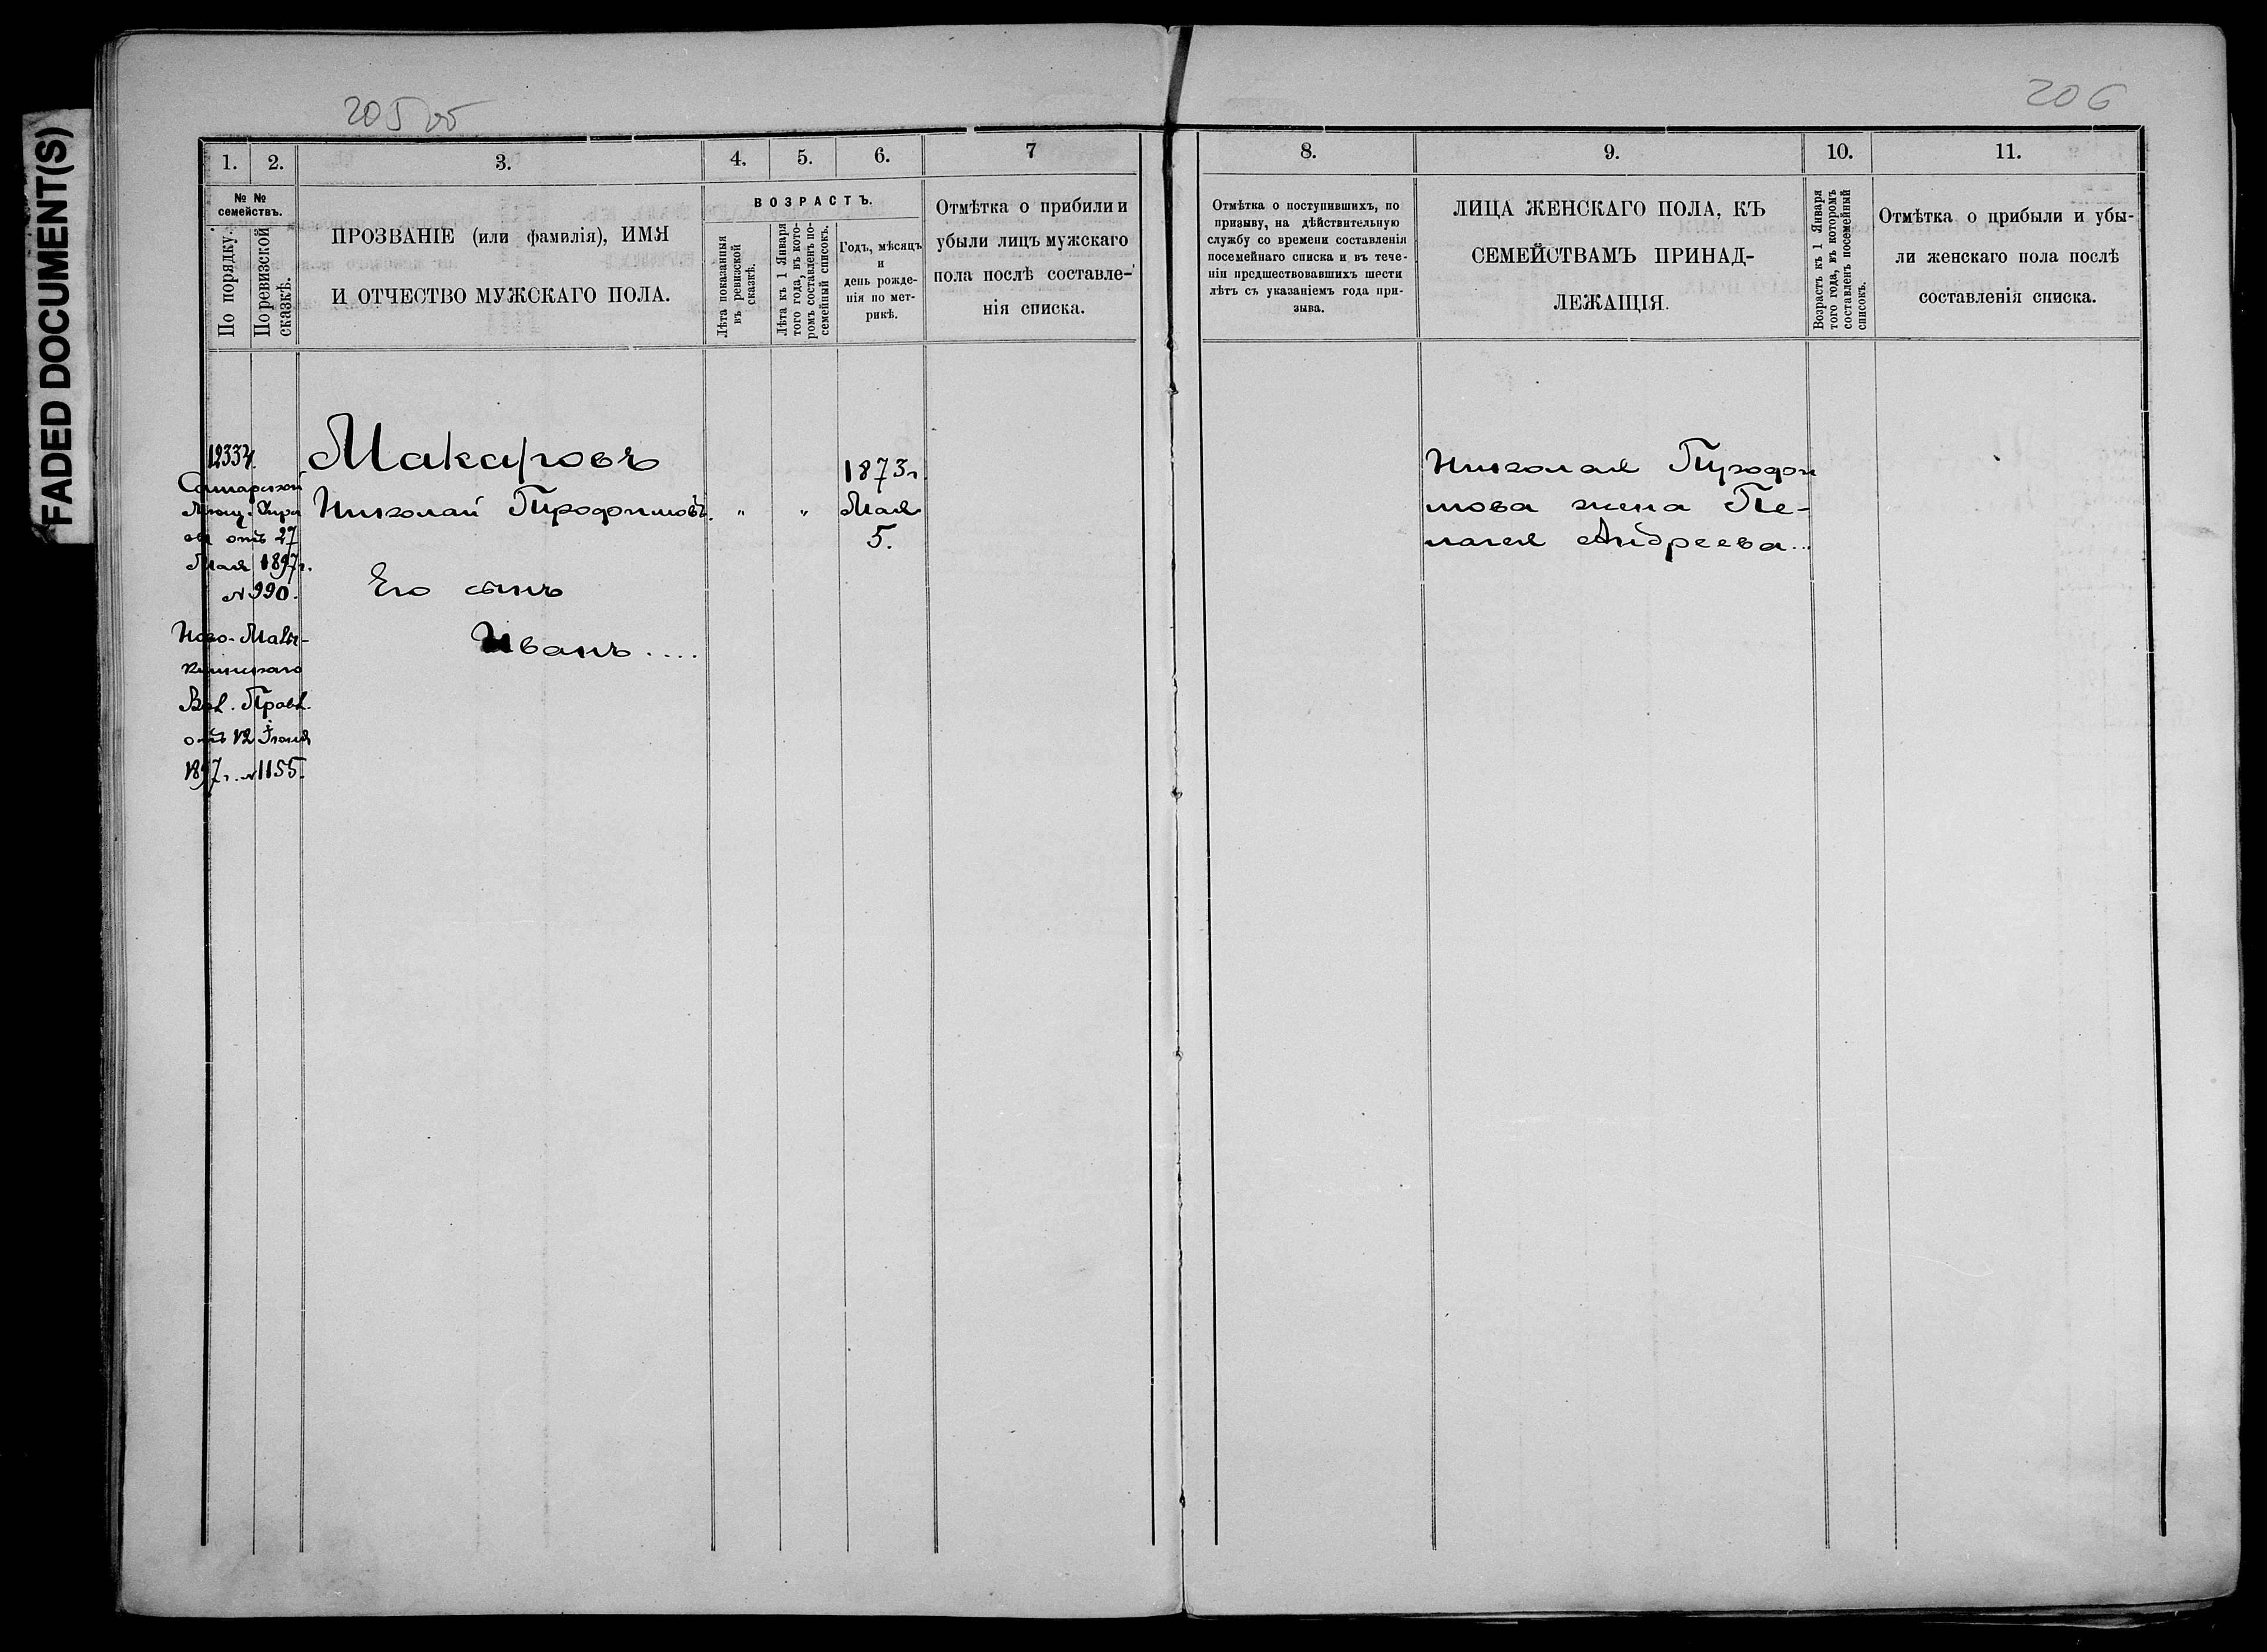 FADED DOCUMENT(S)
205 об
206
1.
2.
3.
4.
5.
6.
7
№ №
семействъ.
По порядку.
По ревизской
сказкѣ.
ПРОЗВАНІЕ (или фамилія), ИМЯ
И ОТЧЕСТВО МУЖСКАГО ПОЛА.
ВОЗРАСТЪ.
Лѣта показанныя
въ ревизской
сказкѣ.
Лѣта къ 1 Января
того года, въ кото-
ромъ составленъ по-
семейный списокъ.
Годъ, мѣсяцъ
и
день рожде-
нія по мет-
рикѣ.
Отмѣтка о прибили и
убыли лицъ мужскаго
пола послѣ составле-
нія списка.
12334.
Самарской
Мѣщ. Упра
вы отъ 27
Мая 1897 г.
№ 990.
Ново-Малы-
клинскаго
Вол. Правл.
отъ 12 Іюня
1897 г. № 1155.
Макаровъ
Николай Трофимовъ.
Его сынъ
Иванъ....
"
"
1873 г.
Мая
5.
8.
9.
10.
11.
Отмѣтка о поступившихъ, по
призыву, на дѣйствительную
службу со времени составленія
посемейнаго списка и въ тече-
ніи предшествовавшихъ шести
лѣтъ съ указаніемъ года при-
зыва.
ЛИЦА ЖЕНСКАГО ПОЛА, КЪ
СЕМЕЙСТВАМЪ ПРИНАД-
ЛЕЖАЩІЯ.
Возрастъ къ 1 Января
того года, въ которомъ
составленъ посемейный
списокъ.
Отмѣтка о прибыли и убы-
ли женскаго пола послѣ
составленія списка.
Николая Трофи
мова жена Пе-
лагея Андреева...